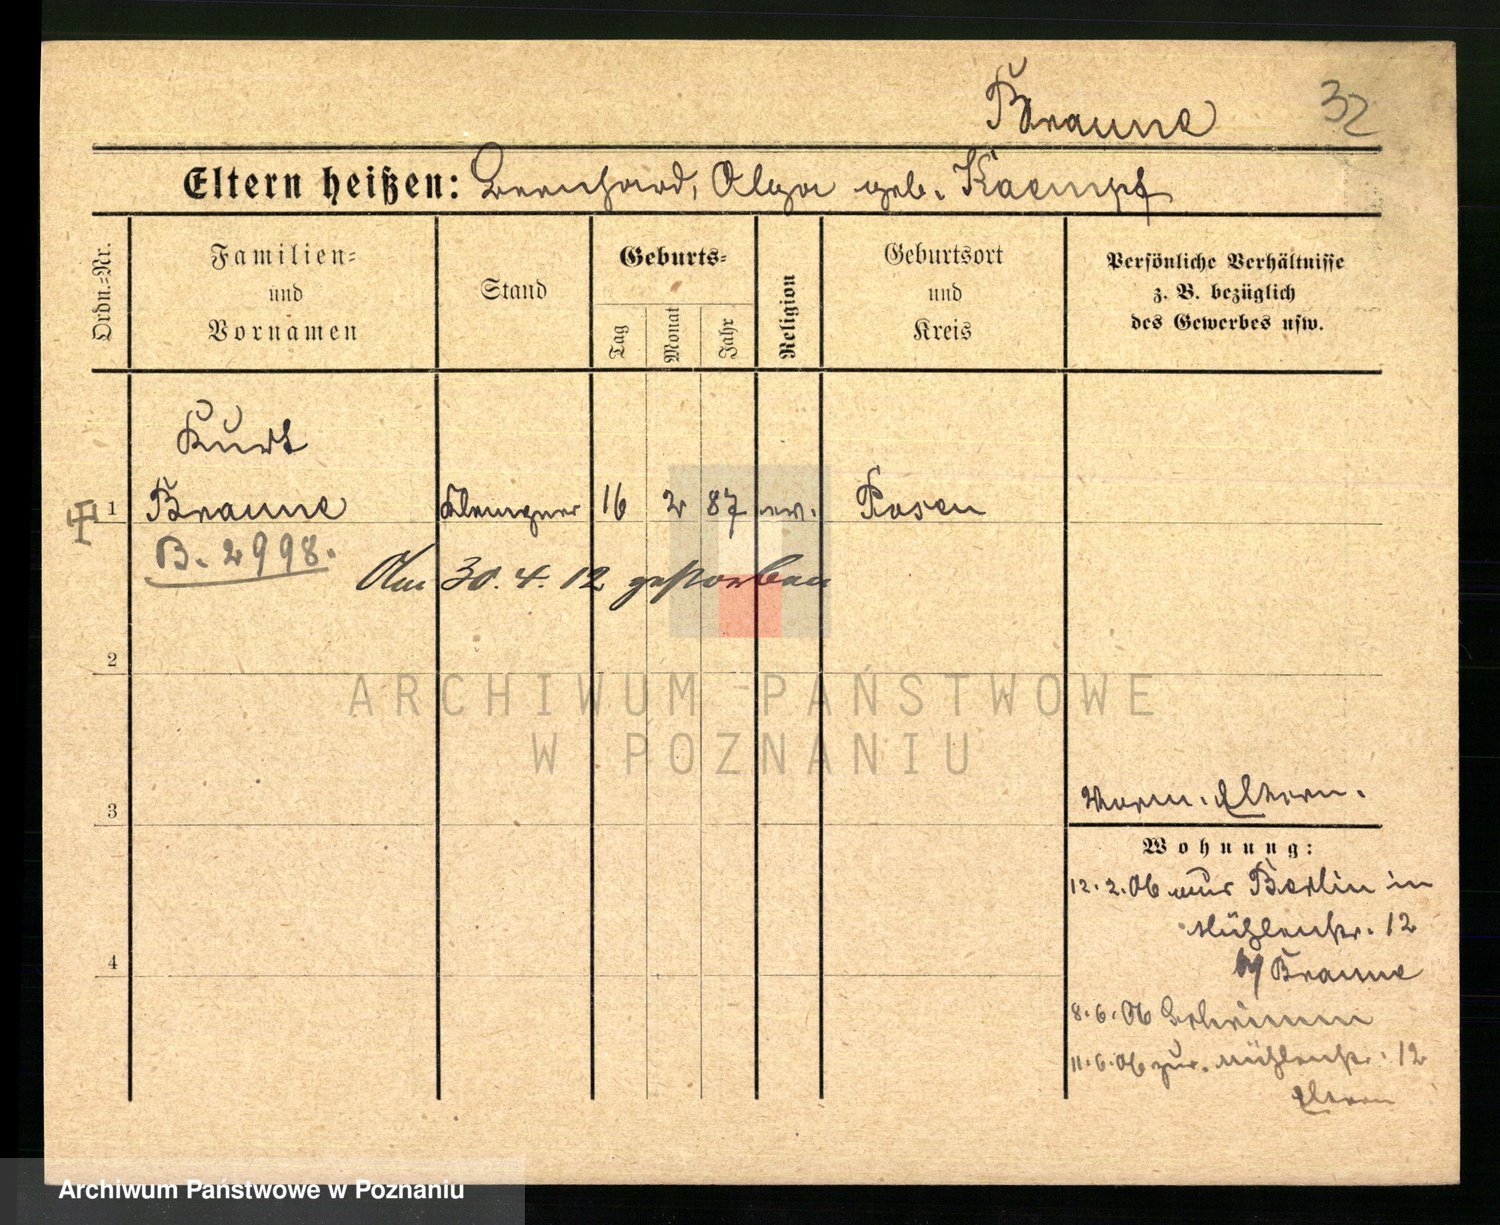 Braune
32
Eltern heißen: Bernhard, Olga geb. Kaempf
Ordn.-Nr.
Familien-
und
Vornamen
Stand
Geburts-
Tag
Monat
Jahr
Religion
Geburtsort
und
Kreis
Persönliche Verhältnisse
z. B. bezüglich
des Gewerbes usw.
Kurt
1 Braune Klempner 16 2 87 ev. Posen
B. 2998.
Am 30.4.12 gestorben
2
ARCHIWUM PAŃSTWOWE
W POZNANIU
3
Vorm. Eltern.
Wohnung:
12.2.06 aus Berlin in
Mühlenstr. 12
Braune
4
8.6.06
11.6.06 zur. Mühlenstr. 12
Eltern
Archiwum Państwowe w Poznaniu